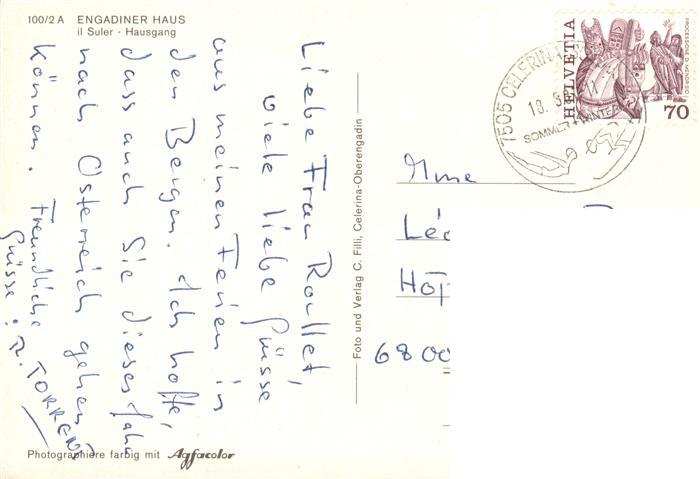 100/2 A ENGADINER HAUS
il Suler - Hausgang
Liebe Frau Roullet,
viele liebe Grüsse
aus meinen Ferien in
den Bergen. Ich hoffe,
dass auch Sie dieses Jahr
nach Österreich gehen
können. Freundliche
Grüsse: R. TORRENT
Photographiere farbig mit Agfacolor
Foto und Verlag C. Filli, Celerina-Oberengadin
7505 CELERINA
18. 3. 8
SOMMER + WINTER
HELVETIA
70
Mme
Léc
Hôp
6800